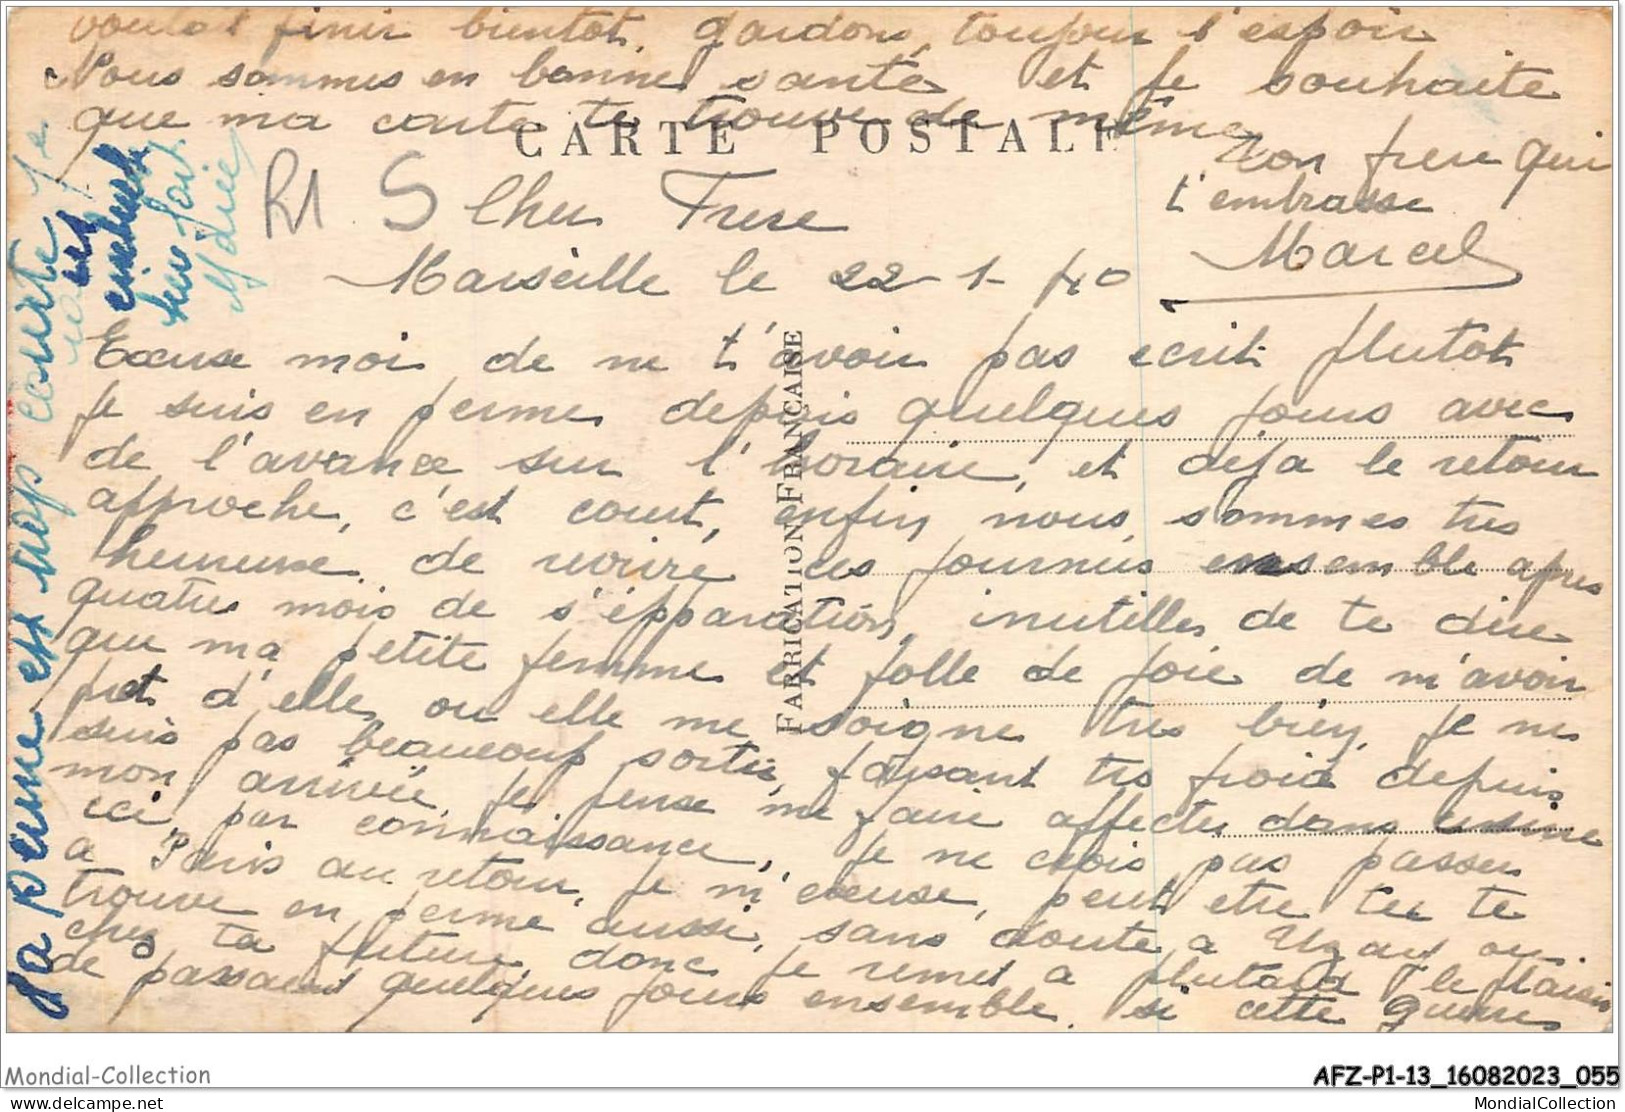 voulait finir bientot, gardons toujours l'espoir
Nous sommes en bonne santé et je souhaite
que ma carte te trouve de même
CARTE POSTALE
Ton frere qui
t'embrasse
Marcel
R1 S Cher Frere
Marseille le 22-1-40
Excuse moi de ne t'avoir pas écrit plutot
je suis en perme depuis quelques jours avec
de l'avance sur l'horaire, et deja le retour
approche, c'est court, enfin nous sommes tres
heureuse de revivre ces journées ensemble apres
quatres mois de s'épparation, inutilles de te dire
que ma petite femme et folle de joie de m'avoir
pret d'elle, ou elle me soigne tres bien, Je ne
suis pas beaucoup sortie, faisant tres froid depuis
mon arrivée, je pense me faire affecter dans usine
ici par connaissance, Je ne crois pas passer
a Paris au retour, je m'excuse, peut etre tu te
trouve en perme aussi, sans doute a Uzaut ou
chez ta future donc je remet a plutard le plaisir
de passaent quelques jours ensemble, si cette guerre
FABRICATION FRANÇAISE
la perme est trop courte je
Mondial-Collection
AFZ-P1-13_16082023_055
delcampe.net
MondialCollection